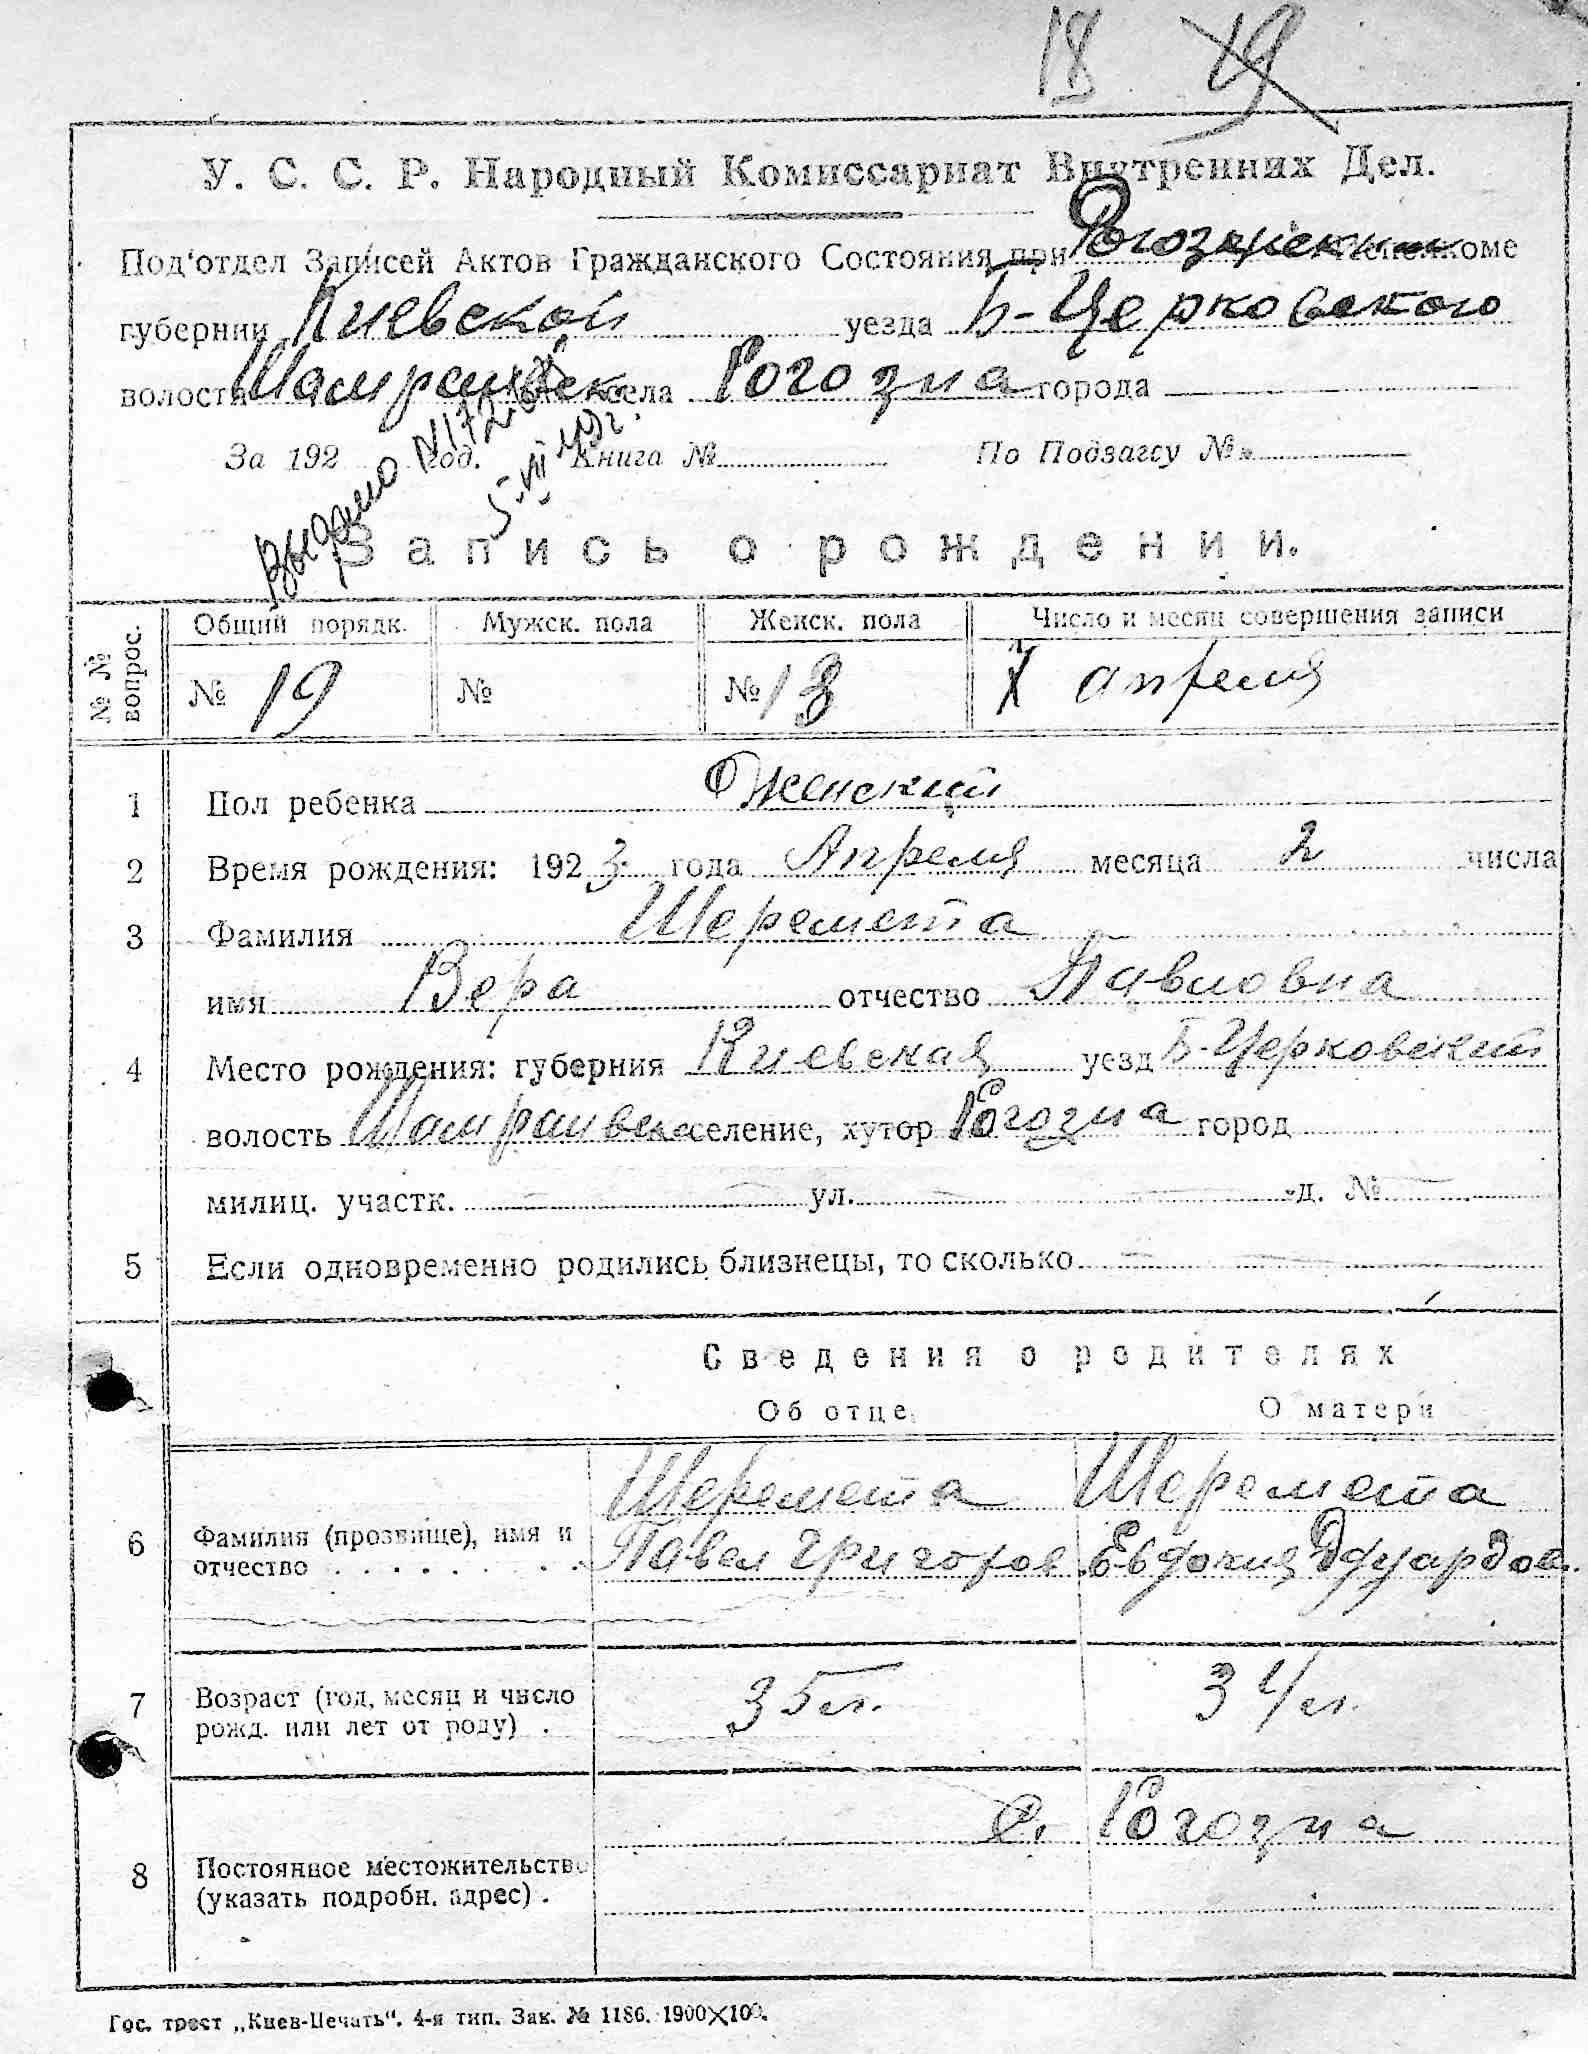 18 19
У. С. С. Р. Народный Комиссариат Внутренних Дел.
Под'отдел Записей Актов Гражданского Состояния при Рогознянским Исполкоме
губернии Киевской уезда Б-Церковского
волости Шамраивск села Рогозна города
За 192 год. Книга № По Подзагсу №
Выдано N172
5-VII 49г.
Запись о рождении.
№ № вопрос. Общий порядк. Мужск. пола Женск. пола Число и месяц совершения записи
№ 19 № № 13 апреля
1 Пол ребенка Женский
2 Время рождения: 1923 года Апреля месяца 2 числа
3 Фамилия Шеремета
имя Вера отчество Павловна
4 Место рождения: губерния Киевская уезд Б-Церковский
волость Шамраивска селение, хутор Рогозна город
милиц. участк. ул. д. №
5 Если одновременно родились близнецы, то сколько
Сведения о родителях
Об отце. О матери
Шеремета Шеремета
6 Фамилия (прозвище), имя и отчество Павел Григоров. Евдокия Эдуардов.
7 Возраст (год, месяц и число рожд. или лет от роду) . 35 л. 34 л.
с. Рогозна
8 Постоянное местожительство
(указать подробн. адрес) .
Гос. трест „Киев-Печать". 4-я тип. Зак. № 1186. 1900×100.